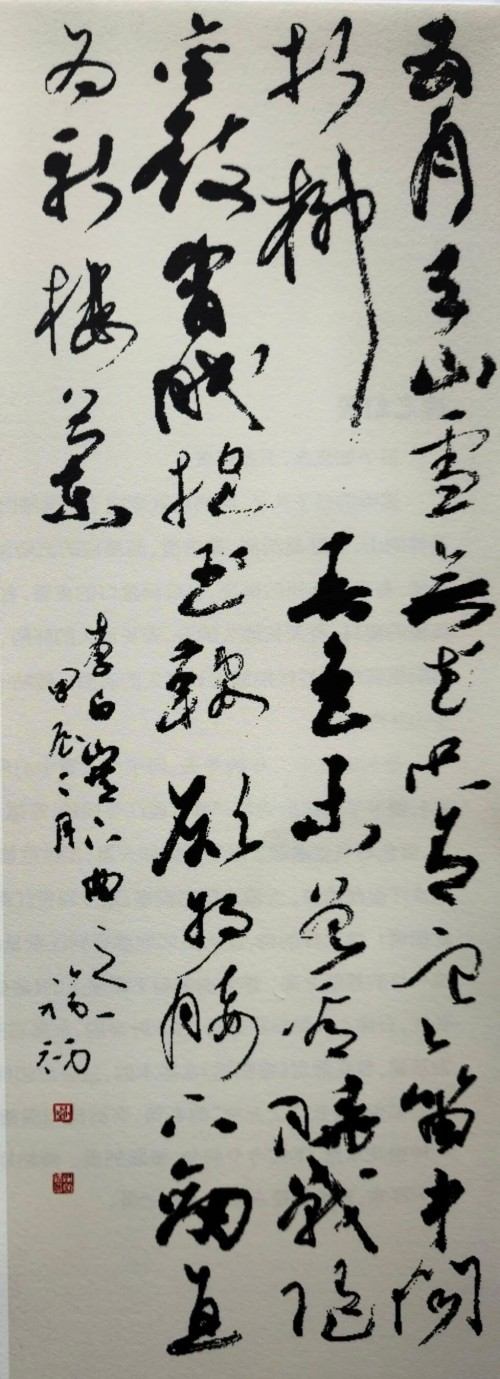 五月天山雪無花只有寒笛中聞
折柳春色未曾看曉戰隨
金鼓宵眠抱玉鞍願將腰下劍直
为斬樓蘭
李白塞下曲之一
甲辰二月